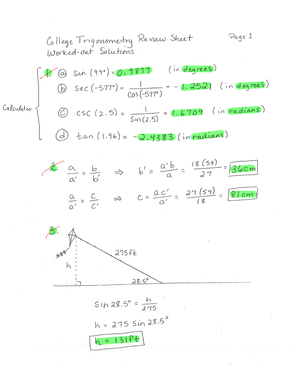 College Trigonometry Review Sheet Page 1
Worked-out Solutions
1. a sin (99°) = 0.9877 (in degrees)
b sec (-577°) = 1/cos(-577°) = -1.2521 (in degrees)
Calculator
c csc (2.5) = 1/sin(2.5) = 1.6709 (in radians)
d tan (1.96) = -2.4383 (in radians)
2. a/a' = b/b' ⇒ b' = a'b/a = 18(54)/27 = 36cm
a/a' = c/c' ⇒ c = ac'/a' = 27(54)/18 = 81cm
3.
275ft
h
28.5°
sin 28.5° = h/275
h = 275 sin 28.5°
h = 131ft